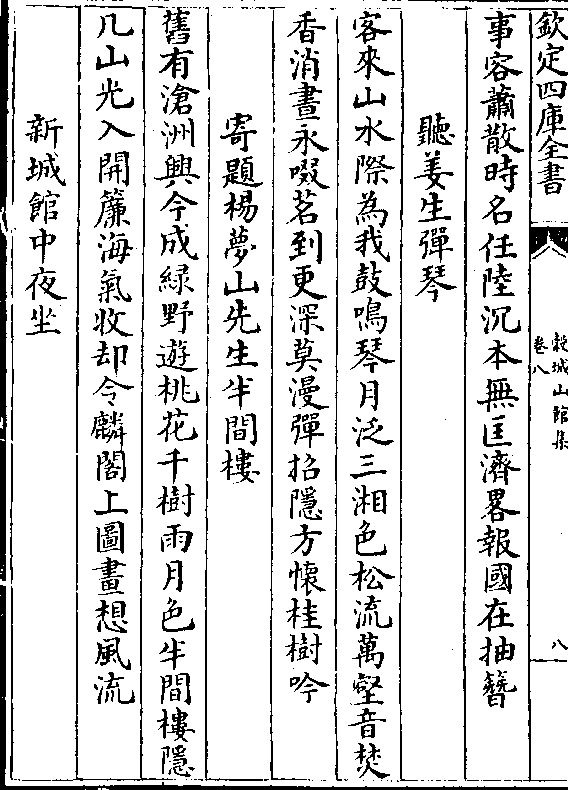 欽定四庫全書
穀城山館集
卷八
八
事容蕭散時名任陸沉本無匡濟畧報國在抽簪
聽姜生彈琴
客來山水際為我鼓鳴琴月泛三湘色松流萬壑音焚
香消晝永啜茗到更深莫漫彈招隱方懷桂樹吟
寄題楊夢山先生半間樓
舊有滄洲興今成緑野遊桃花千樹雨月色半間樓隱
几山光入開簾海氣收却令麟閣上圖畫想風流
新城館中夜坐